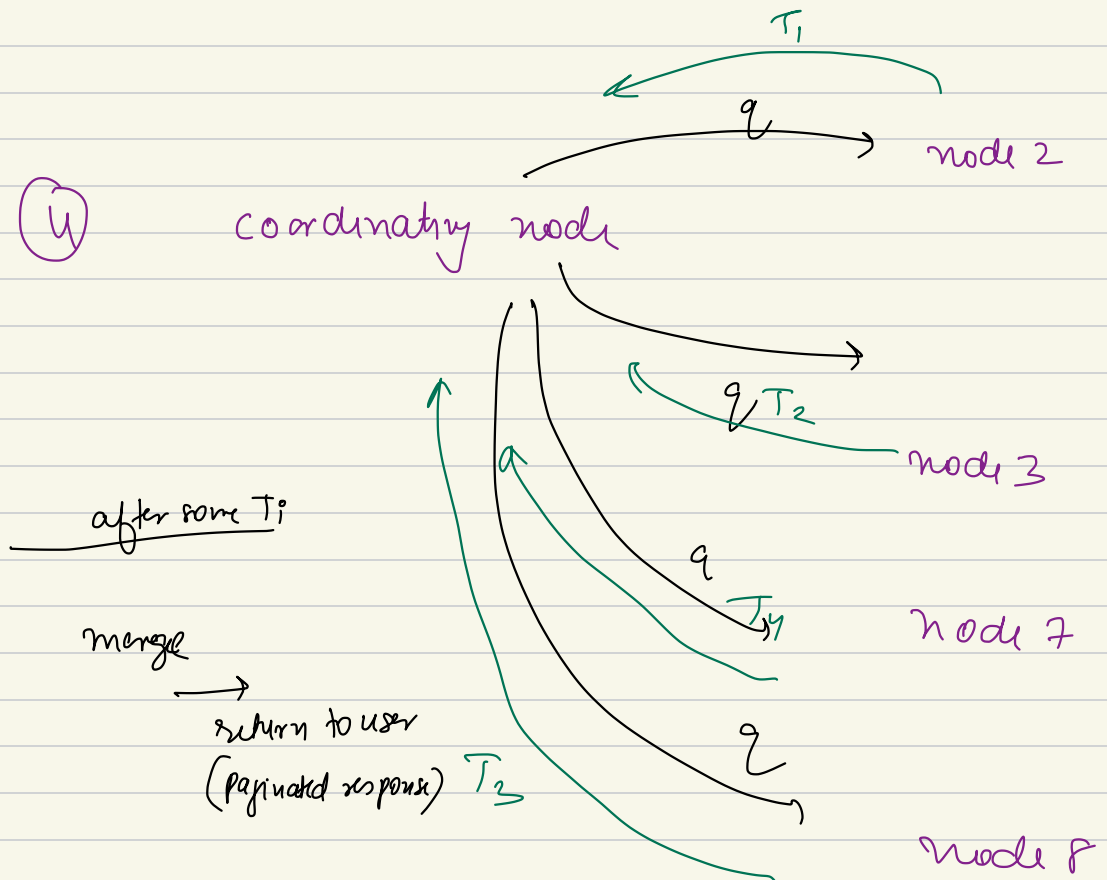 T1
q
node 2
4 coordinating node
q T2
node 3
after some Ti
q
T4
node 7
merge
return to user
(paginated response) T3
q
node 8